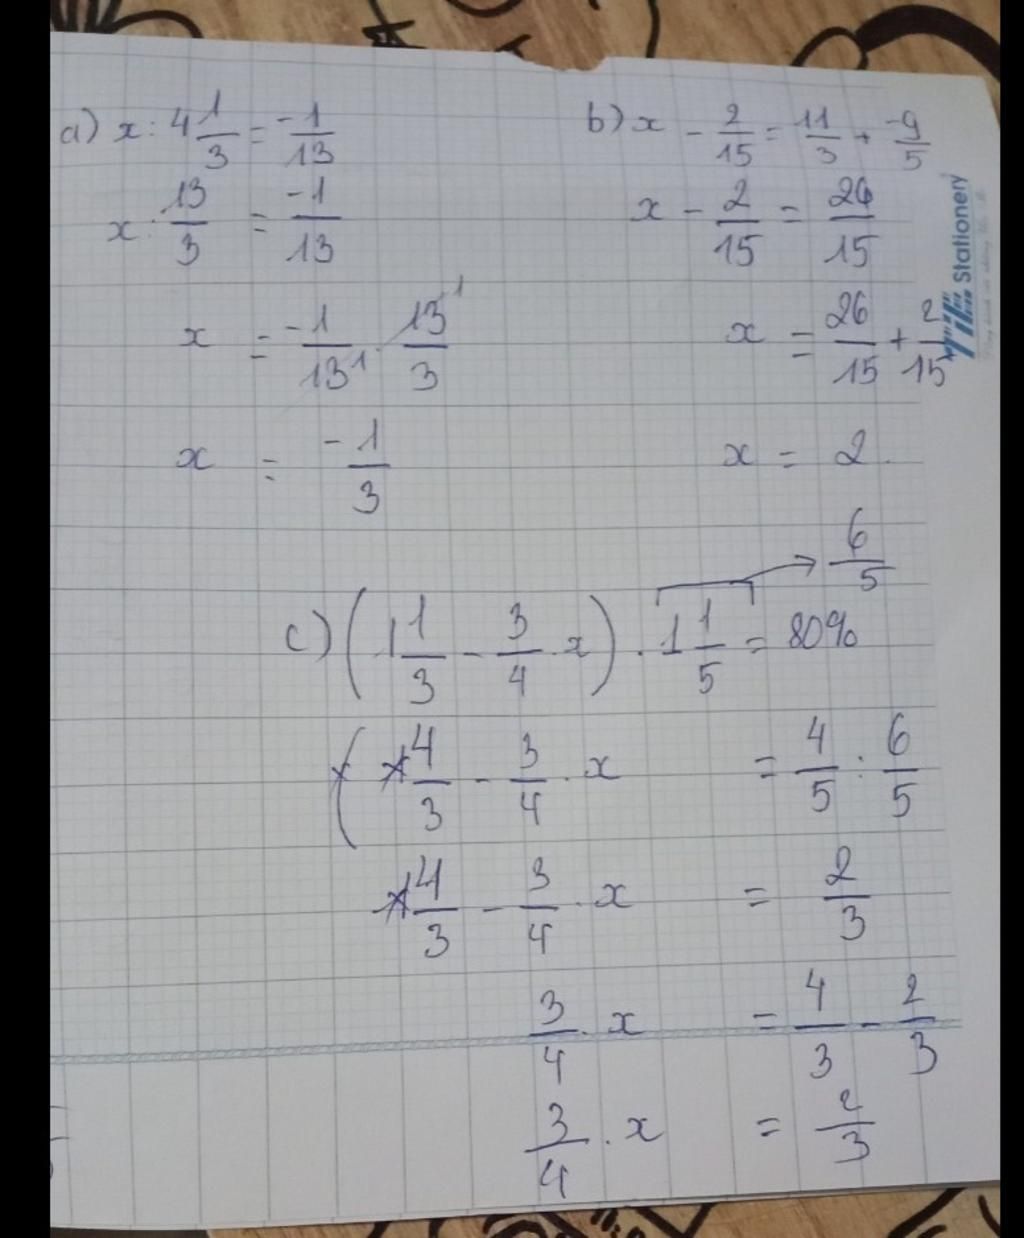 a) x : 4 1/3 = -1/13
x : 13/3 = -1/13
x = -1/13 · 13/3
x = -1/3
b) x - 2/15 = 11/3 + -9/5
x - 2/15 = 26/15
x = 26/15 + 2/15
x = 2
6/5
c) (1 1/3 - 3/4 x) · 1 1/5 = 80%
( 4/3 - 3/4 · x = 4/5 : 6/5
4/3 - 3/4 · x = 2/3
3/4 · x = 4/3 - 2/3
3/4 · x = 2/3
TiTi Stationery